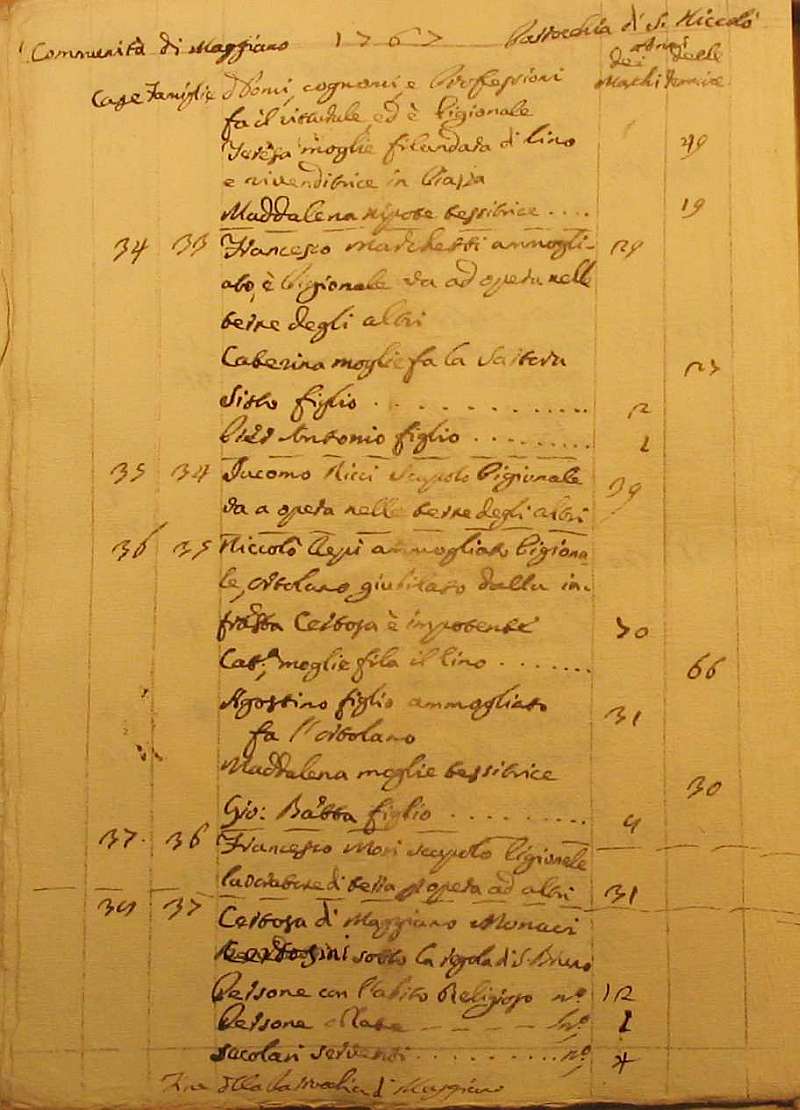 Communità di Maggiano 1767 Parrocchia di S. Niccolò
Anni
dei delle
Case Famiglie Nomi, cognomi, e Professioni Maschi Femine
fa il vitturale ed è Pigionale
Teresa moglie filandara di lino 49
e rivenditrice in Piazza
Maddalena nipote tessitrice .... 19
34 33 Francesco Marchetti ammogli- 29
ato, è Pigionale va ad opera nelle
terre degli altri
Caterina moglie fa la Sartora 27
Sisto figlio . . . . . . . . . . . 2
Antonio figlio . . . . . . . . . 1
35 34 Jacomo Ricci scapolo Pigionale 39
va a opera nelle terre degli altri
36 35 Niccolò Pepi ammogliato Pigiona-
le, ortolano giubilato dalla in-
fratta Certosa è impotente 70
Cat.a moglie fila il lino . . . . . . . 66
Agostino figlio ammogliato 31
fa l'ortolano
Maddalena moglie tessitrice 30
Gio: Batta figlio . . . . . . . . . 4
37. 36 Francesco Mori scapolo Pigionale
lavoratore di terra opera ad altri 31
37 Certosa di Maggiano Monaci
sotto la regola di S. Bruno
Persone con l'abito Religioso nº 12
Persone oblate — — — — nº 1
secolari serventi . . . . . . . . . . nº 4
Fine della Parrocchia di Maggiano